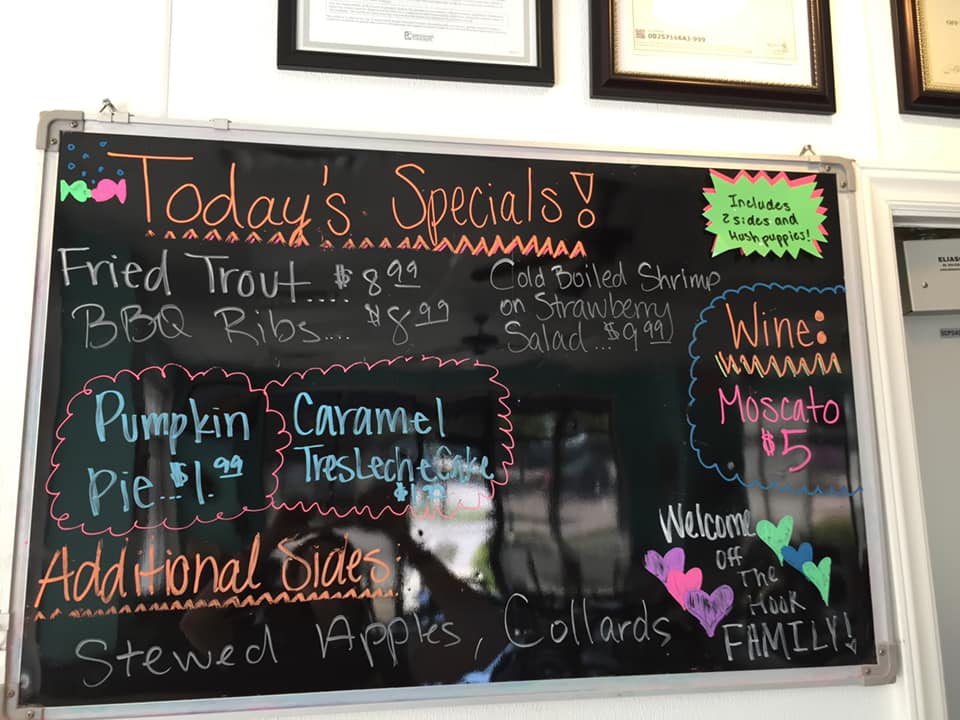 Today's Specials!
Includes
2 sides and
Hushpuppies!
Fried Trout.... $8.99
BBQ Ribs.... $8.99
Cold Boiled Shrimp
on Strawberry
Salad...$9.99
Wine:
Moscato
$5
Pumpkin
Pie...$1.99
Caramel
TresLecheCake
$1.99
Additional Sides:
Stewed Apples, Collards
Welcome
OFF
The
HOOK
FAMILY!